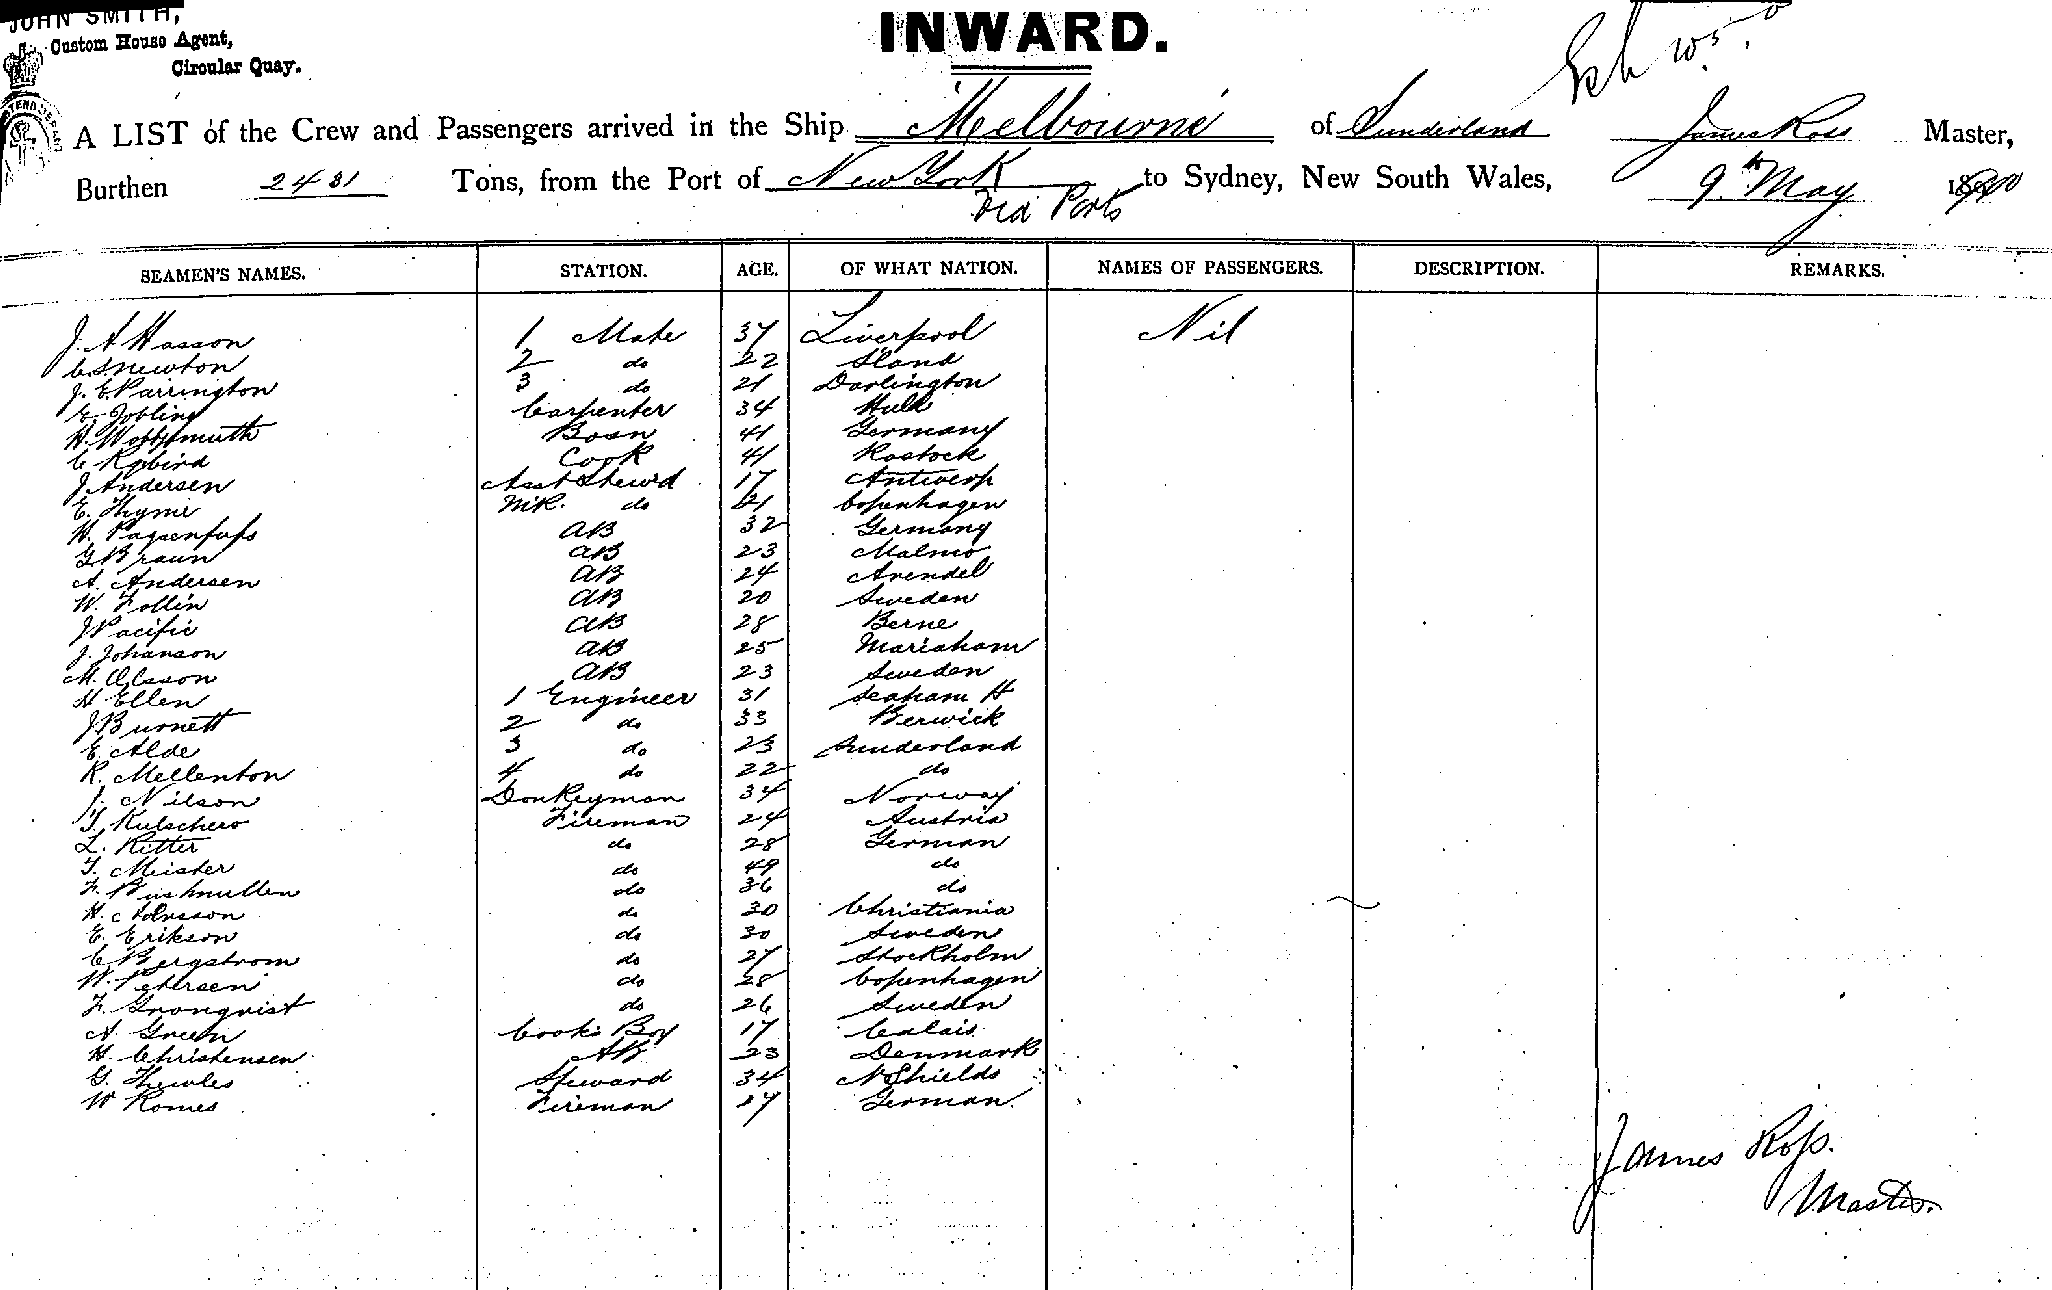 JOHN SMITH,
Custom House Agent,
Circular Quay.
INWARD.
A LIST of the Crew and Passengers arrived in the Ship Melbourne of Sunderland James Ross Master,
Burthen 2431 Tons, from the Port of New York to Sydney, New South Wales, 9th May
Via Ports
SEAMEN'S NAMES. STATION. AGE. OF WHAT NATION. NAMES OF PASSENGERS. DESCRIPTION. REMARKS.
J. A Hasson 1 Mate 37 Liverpool Nil
C. S Newton 2 do 22 Sland
J. E Parrington 3 do 21 Darlington
E. Jobling Carpenter 34 Hull
H. Bosn 41 Germany
C Cook 41 Rostock
J. Andersen Asst Stewd 17 Antwerp
E. Thyme MR. do 21 Copenhagen
H. AB 32 Germany
G Braun AB 23 Malmo
A. Andersen AB 24 Arendel
W. Follin AB 20 Sweden
J Pacific AB 28 Berne
J. Johanson AB 25 Marieham
M. Olsson AB 23 Sweden
H Ellen 1 Engineer 31 Seaham H
J Burnett 2 do 33 Berwick
E. Alde 3 do 23 Sunderland
R. Mellenton 4 do 22 do
J. Nilson Donkeyman 34 Norway
J. Kulschero Fireman 24 Austria
L. Ritter do 28 German
J. Meister do 49 do
F. do 36 do
H. do 30 Christiania
E. Erikson do 30 Sweden
C Bergstrom do 27 Stockholm
W. Petersen do 28 Copenhagen
F. Gronqvist do 26 Sweden
A. Green Cooks Boy 17 Calais
H. Christensen AB 23 Denmark
G. Thewles Steward 34 N Shields
W Romes Fireman 27 German
James Ross.
Master